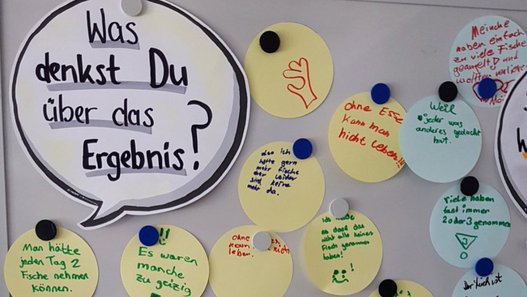 Was
denkst Du
über das
Ergebnis?
Menschen
haben einfach
zu viele Fische
geangelt! und
wollten
ohne Essen
kann man
nicht leben!!!
Weil
jeder was
anderes gedacht
hat.
das ich
hätte gern
mehr Fische
aber leider
sind keine
mehr da.
Viele haben
fast immer
2 oder 3 genommen
Man hätte
jeden Tag 2
Fische nehmen
können.
Es waren
manche
zu geizig
ohne
leben.
so doof das
nicht alle keinen
Fisch genommen
haben!